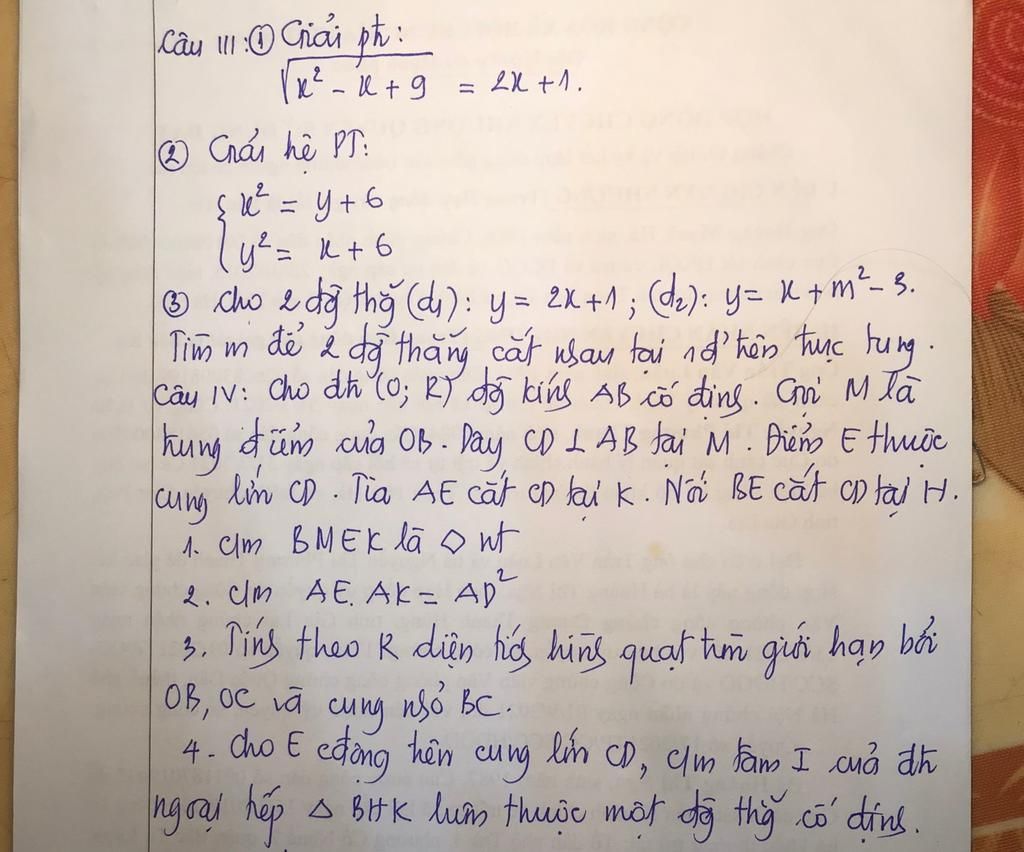 Câu III: ① Giải pt:
√x² - x + 9 = 2x + 1.
② Giải hệ PT:
{ x² = y + 6
y² = x + 6
③ Cho 2 đg thg (d₁): y = 2x + 1 ; (d₂): y = x + m² - 3.
Tìm m để 2 đg thẳng cắt nhau tại 1 đ' trên trục tung.
Câu IV: Cho đtr (O; R) đg kính AB cố định. Gọi M là
trung điểm của OB. Dây CD ⊥ AB tại M. Điểm E thuộc
cung lớn CD. Tia AE cắt CD tại K. Nối BE cắt CD tại H.
1. Cm BMEK là ◇ nt
2. Cm AE. AK = AD²
3. Tính theo R diện tích hình quạt tròn giới hạn bởi
OB, OC và cung nhỏ BC.
4. Cho E cđộng trên cung lớn CD, Cm tâm I của đtr
ngoại tiếp △ BHK luôn thuộc một đg thg cố định.